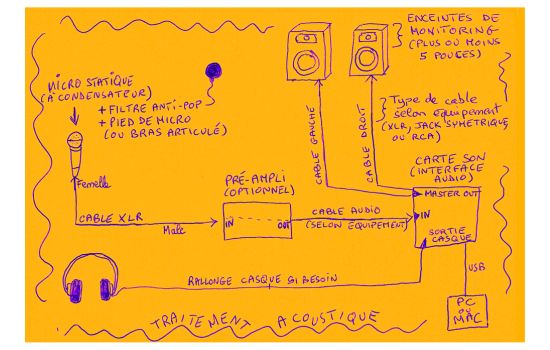 ENCEINTES DE
MONITORING
(PLUS OU MOINS
5 POUCES)
MICRO STATIQUE
(À CONDENSATEUR)
+ FILTRE ANTI-POP
+ PIED DE MICRO
(OU BRAS ARTICULÉ)
CABLE GAUCHE
CABLE DROIT
Type de cable
selon équipement
(XLR, JACK SYMETRIQUE,
OU RCA)
CARTE SON
(INTERFACE
AUDIO)
Femelle
PRÉ-AMPLI
(OPTIONNEL)
MASTER OUT
CABLE XLR
Male
IN
OUT
CABLE AUDIO
(SELON EQUIPEMENT)
IN
SORTIE
CASQUE
RALLONGE CASQUE SI BESOIN
USB
PC
OU
MAC
TRAITEMENT ACOUSTIQUE